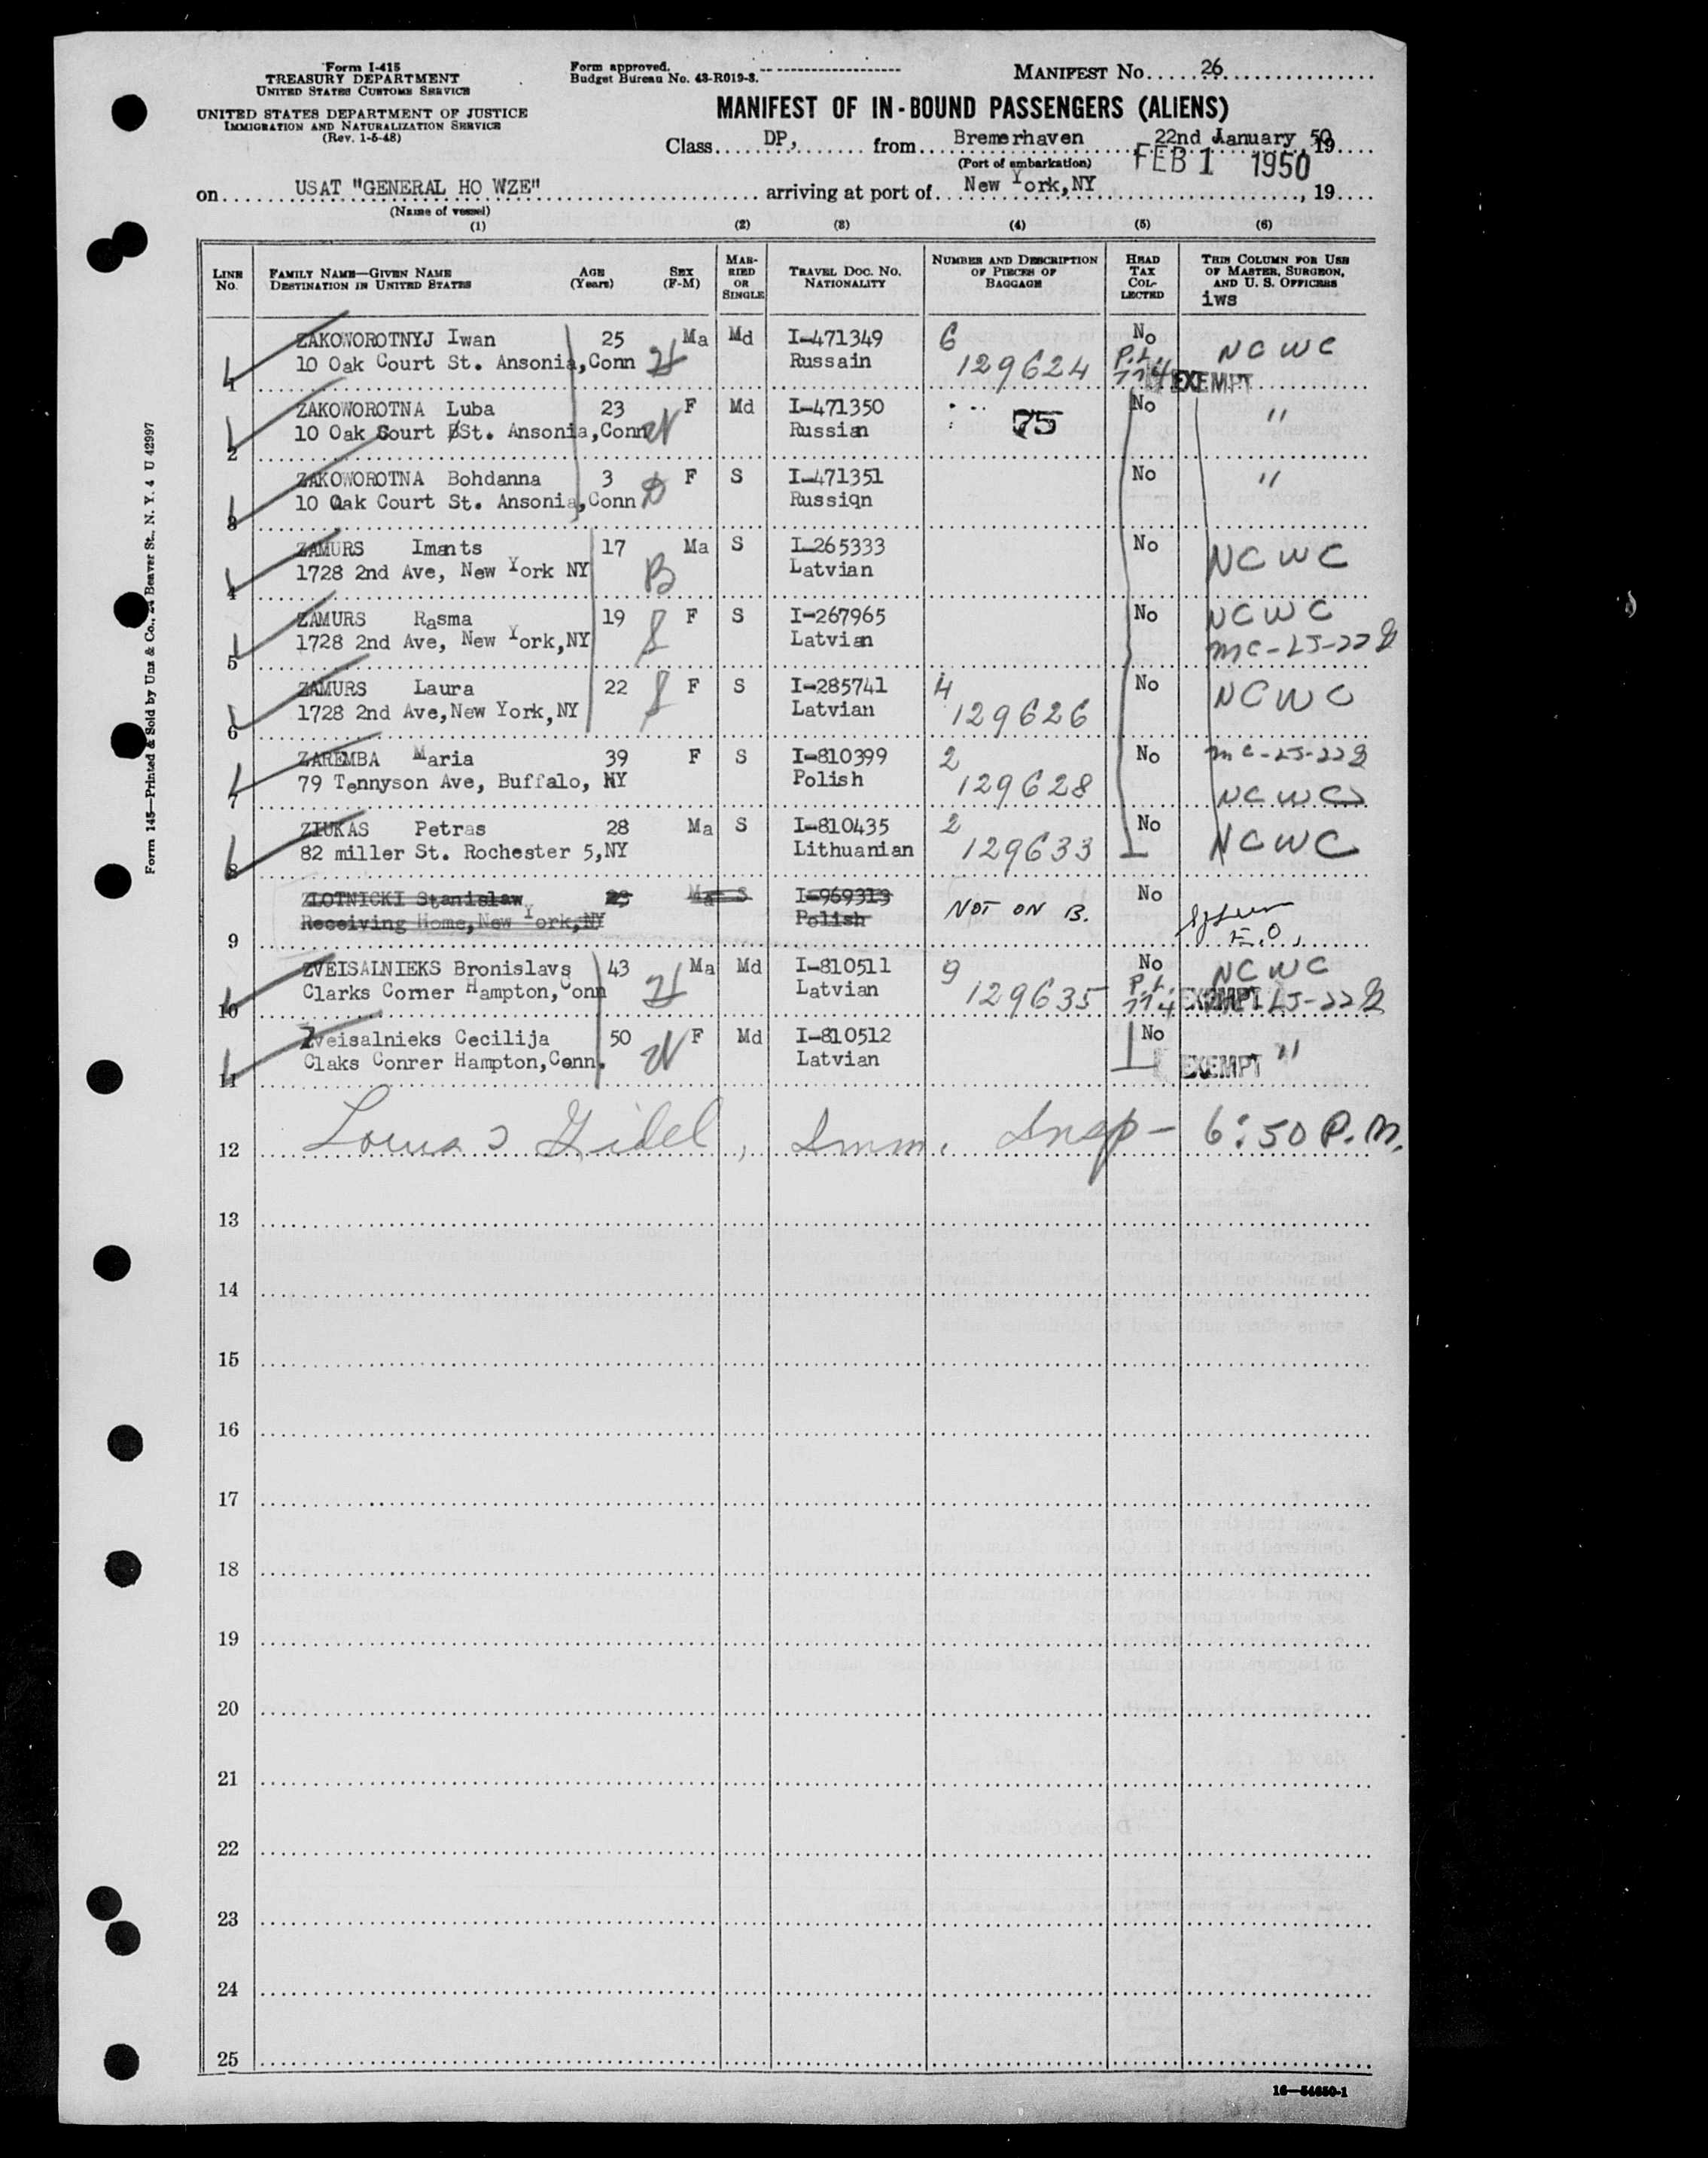 Form I-415
TREASURY DEPARTMENT
UNITED STATES CUSTOMS SERVICE
UNITED STATES DEPARTMENT OF JUSTICE
IMMIGRATION AND NATURALIZATION SERVICE
(Rev. 1-5-48)
Form approved.
Budget Bureau No. 43-R019-3.
MANIFEST No. 26
MANIFEST OF IN-BOUND PASSENGERS (ALIENS)
Class DP, from Bremerhaven 22nd January 50, 19
(Port of embarkation) FEB 1 1950
on USAT "GENERAL HO WZE" arriving at port of New York,NY, 19
(Name of vessel)
(1) (2) (3) (4) (5) (6)
LINE No. FAMILY NAME—GIVEN NAME DESTINATION IN UNITED STATES AGE (Years) SEX (F-M) MARRIED OR SINGLE TRAVEL DOC. NO. NATIONALITY NUMBER AND DESCRIPTION OF PIECES OF BAGGAGE HEAD TAX COLLECTED THIS COLUMN FOR USE OF MASTER, SURGEON, AND U. S. OFFICERS
iws
ZAKOWOROTNYJ Iwan 25 Ma Md I-471349 6 No
1 10 Oak Court St. Ansonia,Conn Russain 129624 P.L. 774 EXEMPT NCWC
ZAKOWOROTNA Luba 23 F Md I-471350 75 No "
2 10 Oak Court St. Ansonia,Conn Russian
ZAKOWOROTNA Bohdanna 3 F S I-471351 No "
3 10 Oak Court St. Ansonia,Conn Russiqn
ZAMURS Imants 17 Ma S I-265333 No NCWC
4 1728 2nd Ave, New York NY B Latvian
ZAMURS Rasma 19 F S I-267965 No NCWC
5 1728 2nd Ave, New York,NY Latvian
ZAMURS Laura 22 F S I-285741 4 No NCWC
6 1728 2nd Ave,New York,NY Latvian 129626
ZAREMBA Maria 39 F S I-810399 2 No
7 79 Tennyson Ave, Buffalo, NY Polish 129628 NCWC
ZIUKAS Petras 28 Ma S I-810435 2 No NCWC
8 82 miller St. Rochester 5,NY Lithuanian 129633
ZLOTNICKI Stanislaw 23 Ma S I-969313 NOT ON B. No
9 Receiving Home,New York,NY Polish E.O.
ZVEISALNIEKS Bronislavs 43 Ma Md I-810511 9 No NCWC
10 Clarks Corner Hampton,Conn Latvian 129635 P.L. 774 EXEMPT
Zveisalnieks Cecilija 50 F Md I-810512 No "
11 Claks Conrer Hampton,Conn. Latvian EXEMPT
12 Imm. Insp - 6:50 P.M.
13
14
15
16
17
18
19
20
21
22
23
24
25
16—54650-1